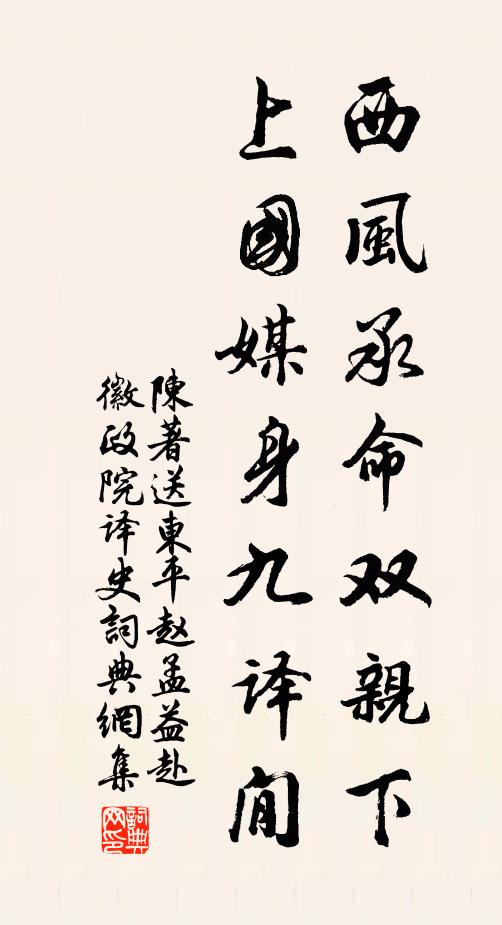 西風承命双親下
上國媒身九译间
陳著送東平赵孟益赴
徽政院译史詞典網集
詞典网印